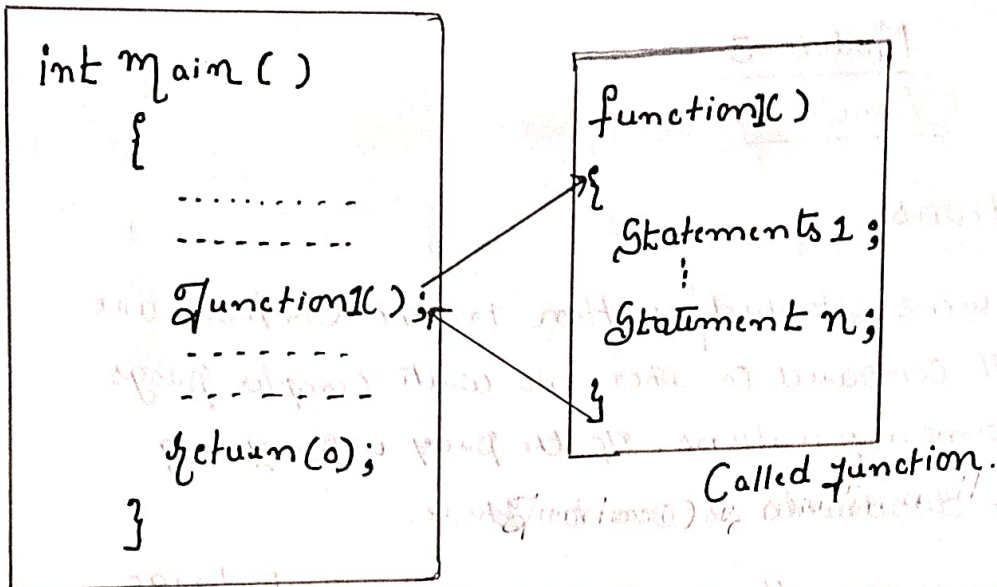 int main ( )
{
..........
--------
function1( );
-------
--------
return(0);
}
function1( )
{
Statements 1;
⋮
Statement n;
}
Called function.